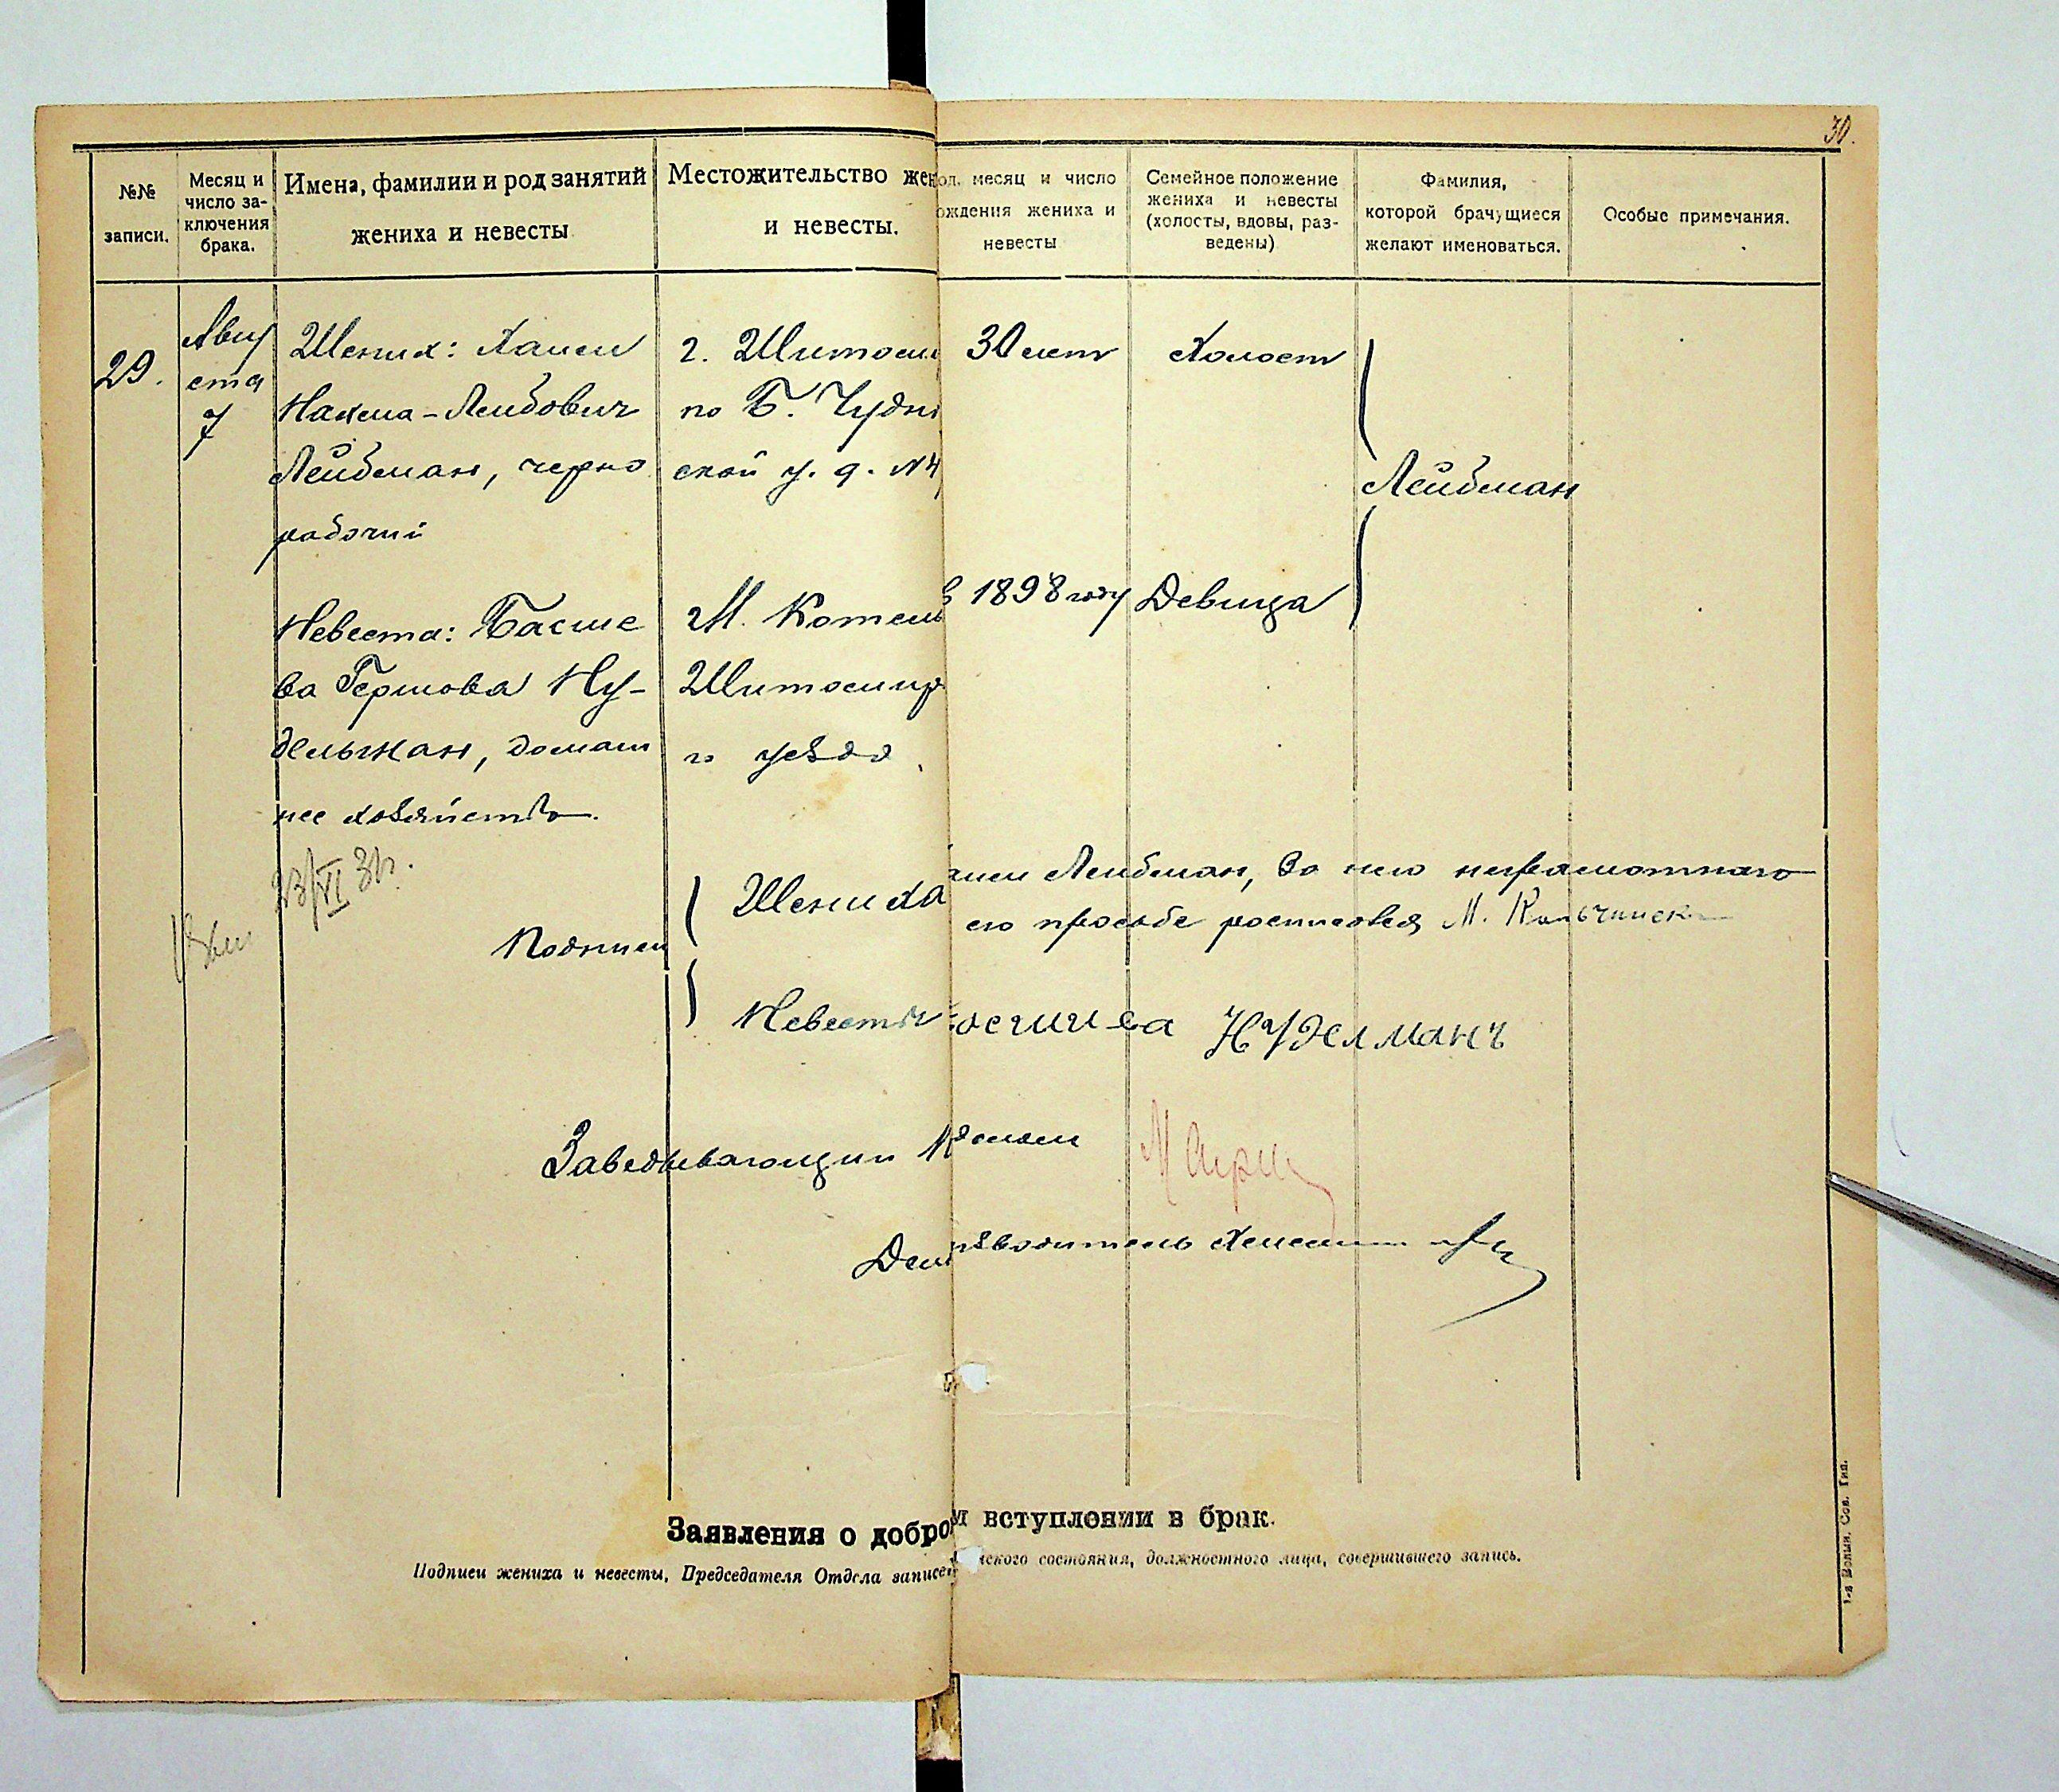 30.
№№ записи.
Месяц и число заключения брака.
Имена, фамилии и род занятий жениха и невесты
Местожительство жен
и невесты.
од, месяц и число
ождения жениха и
невесты
Семейное положение
жениха и невесты
(холосты, вдовы, раз-
ведены)
Фамилия,
которой брачущиеся
желают именоваться.
Особые примечания.
29.
Авгу
ста
7
Жених:
Нахма-Лейбович
Лейбман, черно
рабочий
г. Житоми
по Б. Чудно
ской у. д. №4
30 лет
Холост
Лейбман
Невеста: Басше
ва Гершова Ну-
дельман, домаш
нее хозяйство.
М. Котель
Житомир
го уезда
в 1898 году
Девица
23/VI 31г.
Подписи
Жениха
Лейбман, за него неграмотного
его просьбе росписовся М.
Невесты
Нуделманъ
Заведывающий
Дело
изводитель
Заявления о добро
м вступлении в брак.
Подписи жениха и невесты, Председателя Отдела записей
нского состояния, должностного лица, совершившего запись.
1-я Волын. Сов. Тип.